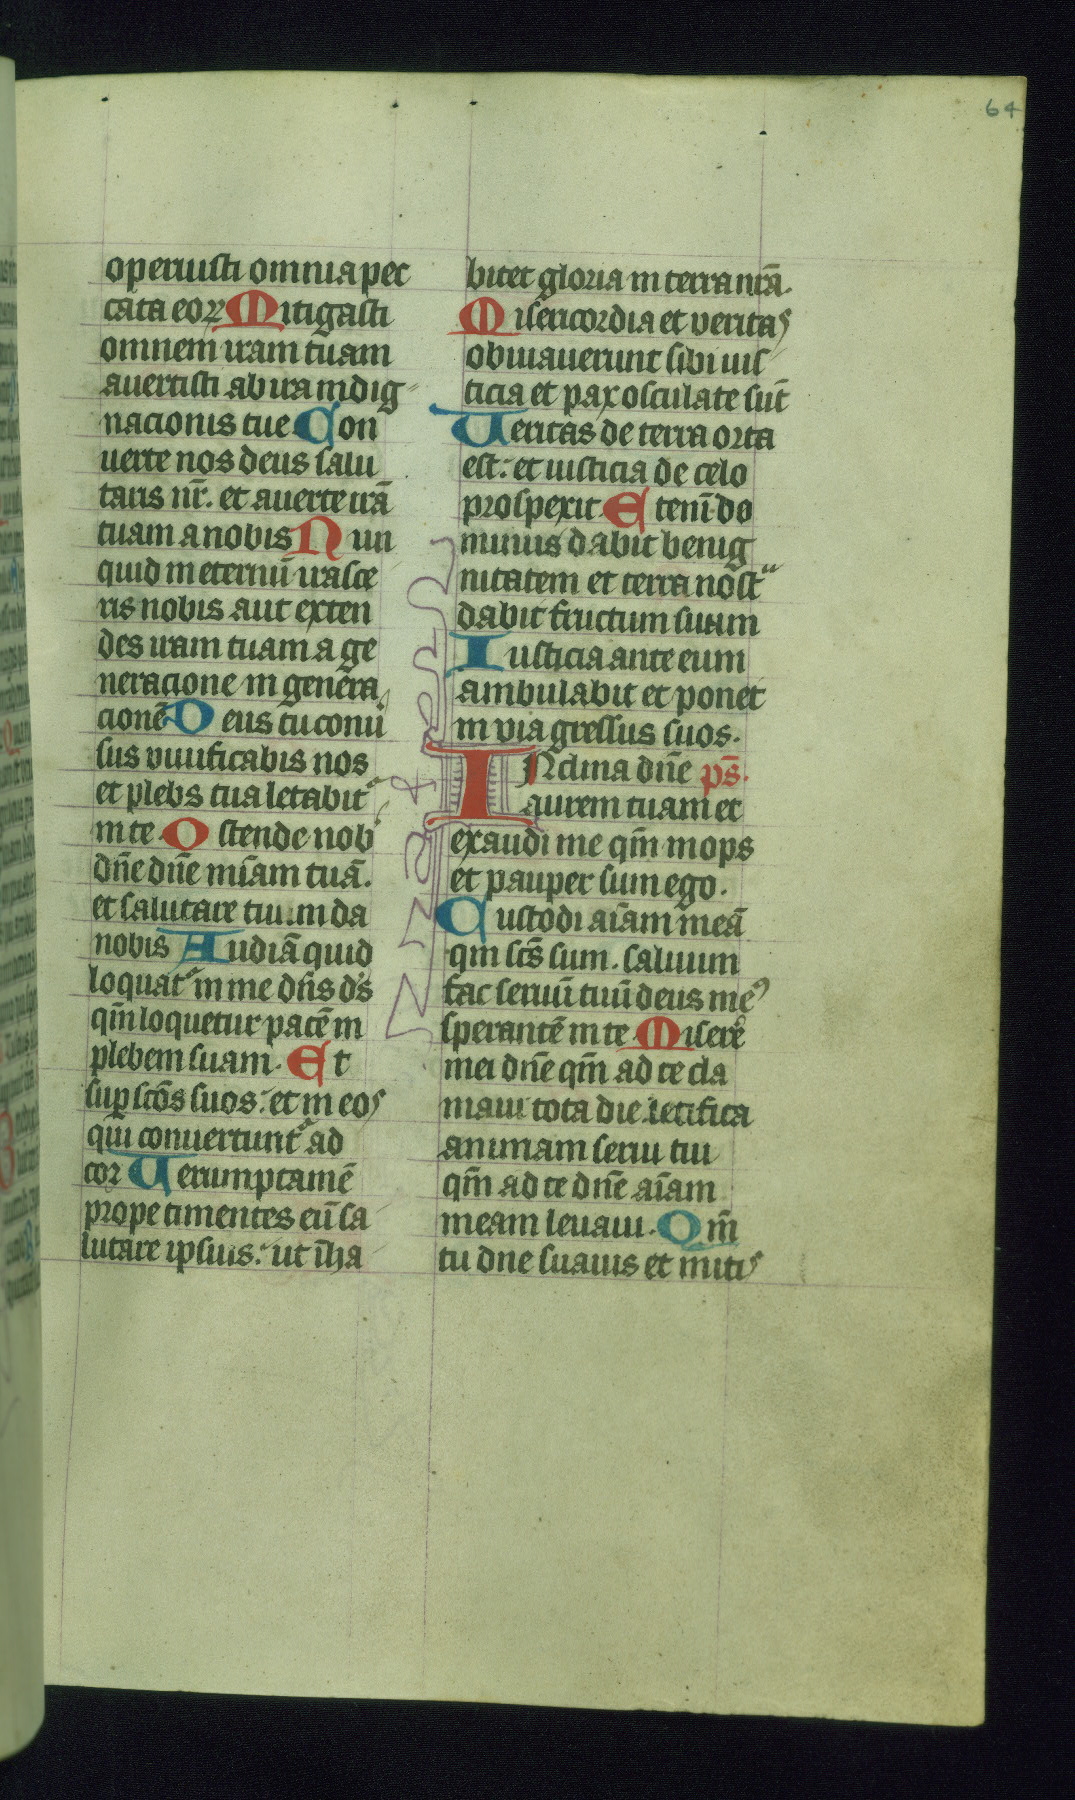 64
operiuisti omnia pec
cata eoꝝ Mitigasti
omnem iram tuam
auertisti ab ira indig
nacionis tue Con
uerte nos deus salu
taris nr̄. et auerte irā
tuam a nobis Nun
quid in eternū irasce
ris nobis aut exten
des iram tuam a ge
neracione in genera
cionē Deus tu conu̾
sus uiuificabis nos
et plebs tua letabit᷑
in te. Ostende nob̾
dn̄e dn̄e mīam tuā.
et salutare tuum da
nobis Audiā quid
loquat᷑ in me dn̄s d's
qm̄ loquetur pacē in
plebem suam. Et
suꝑ sc̄os suos: et in eos
qui conuertunt᷑ ad
cor Uerumptamē
prope timentes eū sa
lutare ipsius: ut īha
bitet gloria in terra nr̄a.
Misericordia et veritas
obuiauerunt sibi ius
ticia et pax osculate sūt
Ueritas de terra orta
est: et iusticia de celo
prospexit Etenī do
minus dabit benig
nitatem et terra nostᵃ
dabit fructum suum
Iusticia ante eum
ambulabit et ponet
in via gressus suos.
INclina dn̄e ps̄.
aurem tuam et
exaudi me qm̄ inops
et pauper sum ego.
Custodi aīam meā
qm̄ sc̄s sum. saluum
fac seruū tuū deus meꝰ
sperantē in te. Misere̾
mei dn̄e qm̄ ad te cla
maui tota die letifica
animam serui tui
qm̄ ad te dn̄e aīam
meam leuaui. Qm̄
tu dn̄e suauis et mitis